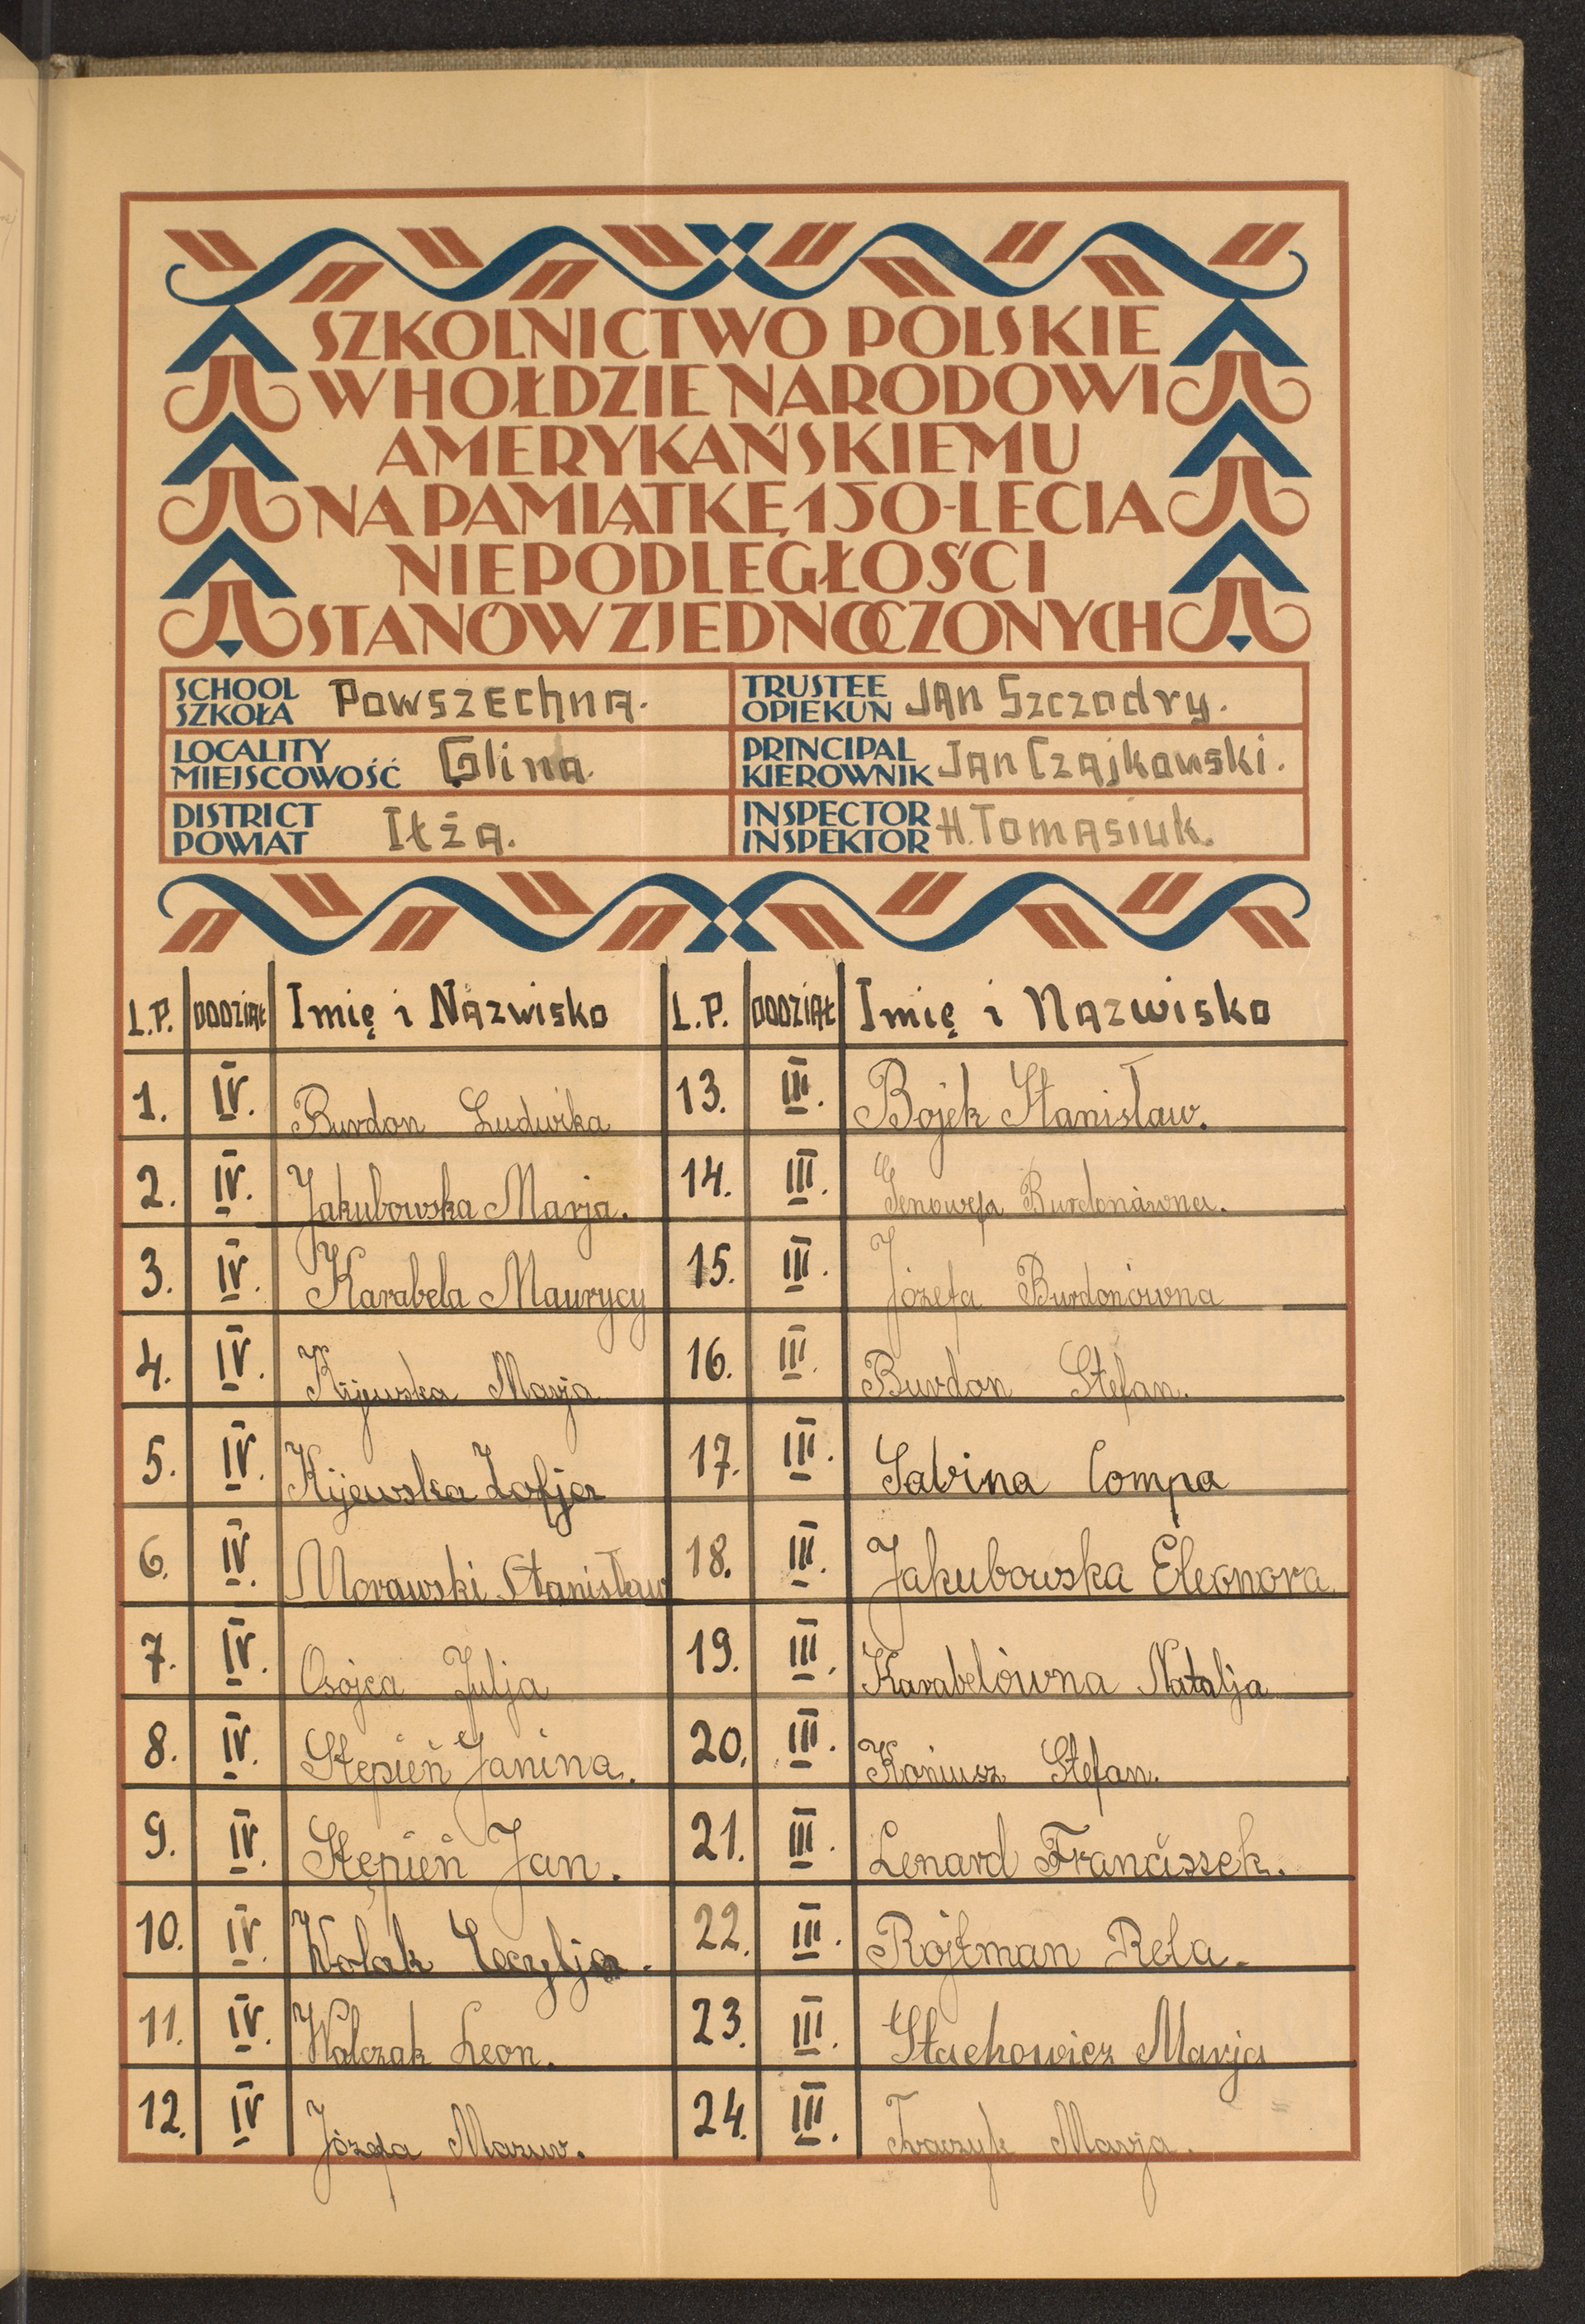 SZKOLNICTWO POLSKIE
W HOŁDZIE NARODOWI
AMERYKAŃSKIEMU
NA PAMIĄTKĘ 150-LECIA
NIEPODLEGŁOŚCI
STANÓW ZJEDNOCZONYCH
SCHOOL
SZKOŁA Powszechna.
TRUSTEE
OPIEKUN Jan Szczodry.
LOCALITY
MIEJSCOWOŚĆ Glina.
PRINCIPAL
KIEROWNIK Jan Czajkowski.
DISTRICT
POWIAT Iłża.
INSPECTOR
INSPEKTOR H. Tomasiuk.
L.P. ODDZIAŁ Imię i Nazwisko L.P. ODDZIAŁ Imię i Nazwisko
1. IV. Burdon Ludwika
2. IV. Jakubowska Marja.
3. IV. Karabela Maurycy
4. IV. Kijewska Marja
5. IV. Kijewska Zofja
6. IV. Morawski Stanisław
7. IV. Osojca Julja
8. IV. Stępień Janina.
9. IV. Stępień Jan.
10. IV. Wolak Cecylja.
11. IV. Walczak Leon.
12. IV Józefa Mazur.
13. III. Bojek Stanisław.
14. III. Genowefa Burdonówna.
15. III. Józefa Burdonówna
16. III. Burdon Stefan.
17. III. Sabina Compa
18. III. Jakubowska Eleonora
19. III. Karabelówna Natalja
20. III. Koniusz Stefan.
21. III. Lenard Franciszek.
22. III. Rojtman Reła.
23. III. Stachowicz Marja
24. III. Marja.